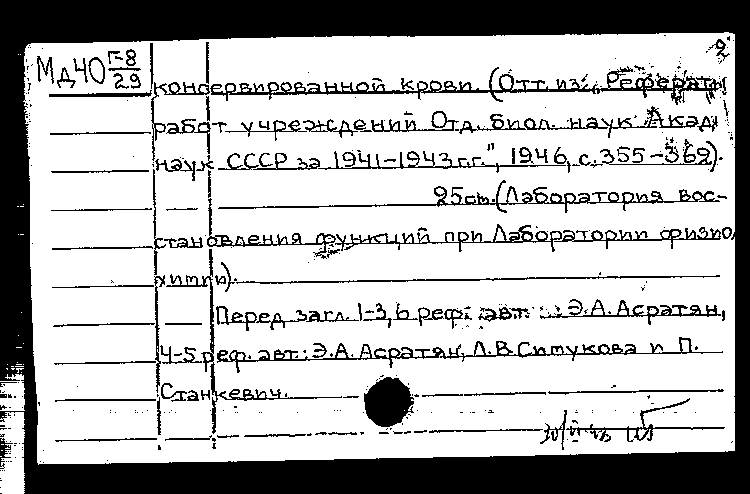 2
Мд40 Г-8/29
консервированной крови. (Отт. из: „Реферат.
работ учреждений Отд. биол. наук Акад.
наук СССР за 1941–1943 г.г.", 1946, с. 355–369).
25 см. (Лаборатория вос-
становления функций при Лаборатории физио
химии).
Перед загл. 1-3, 6 реф. авт.: Э.А. Асратян,
4-5 реф. авт.: Э.А. Асратян, Л.В. Симукова и П.
Станкевич.